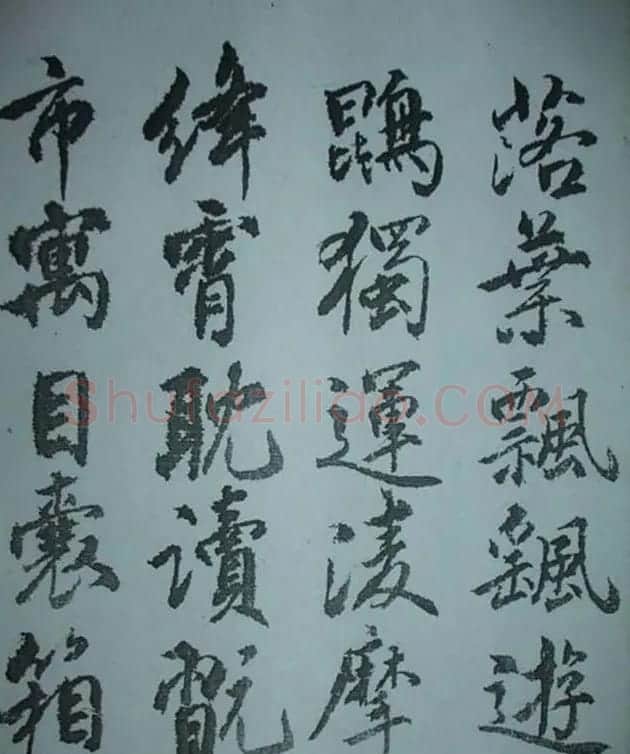 落葉飄颻遊
鵾獨運淩摩
絳霄耽讀翫
市寓目囊箱
Shufaziliao.COM